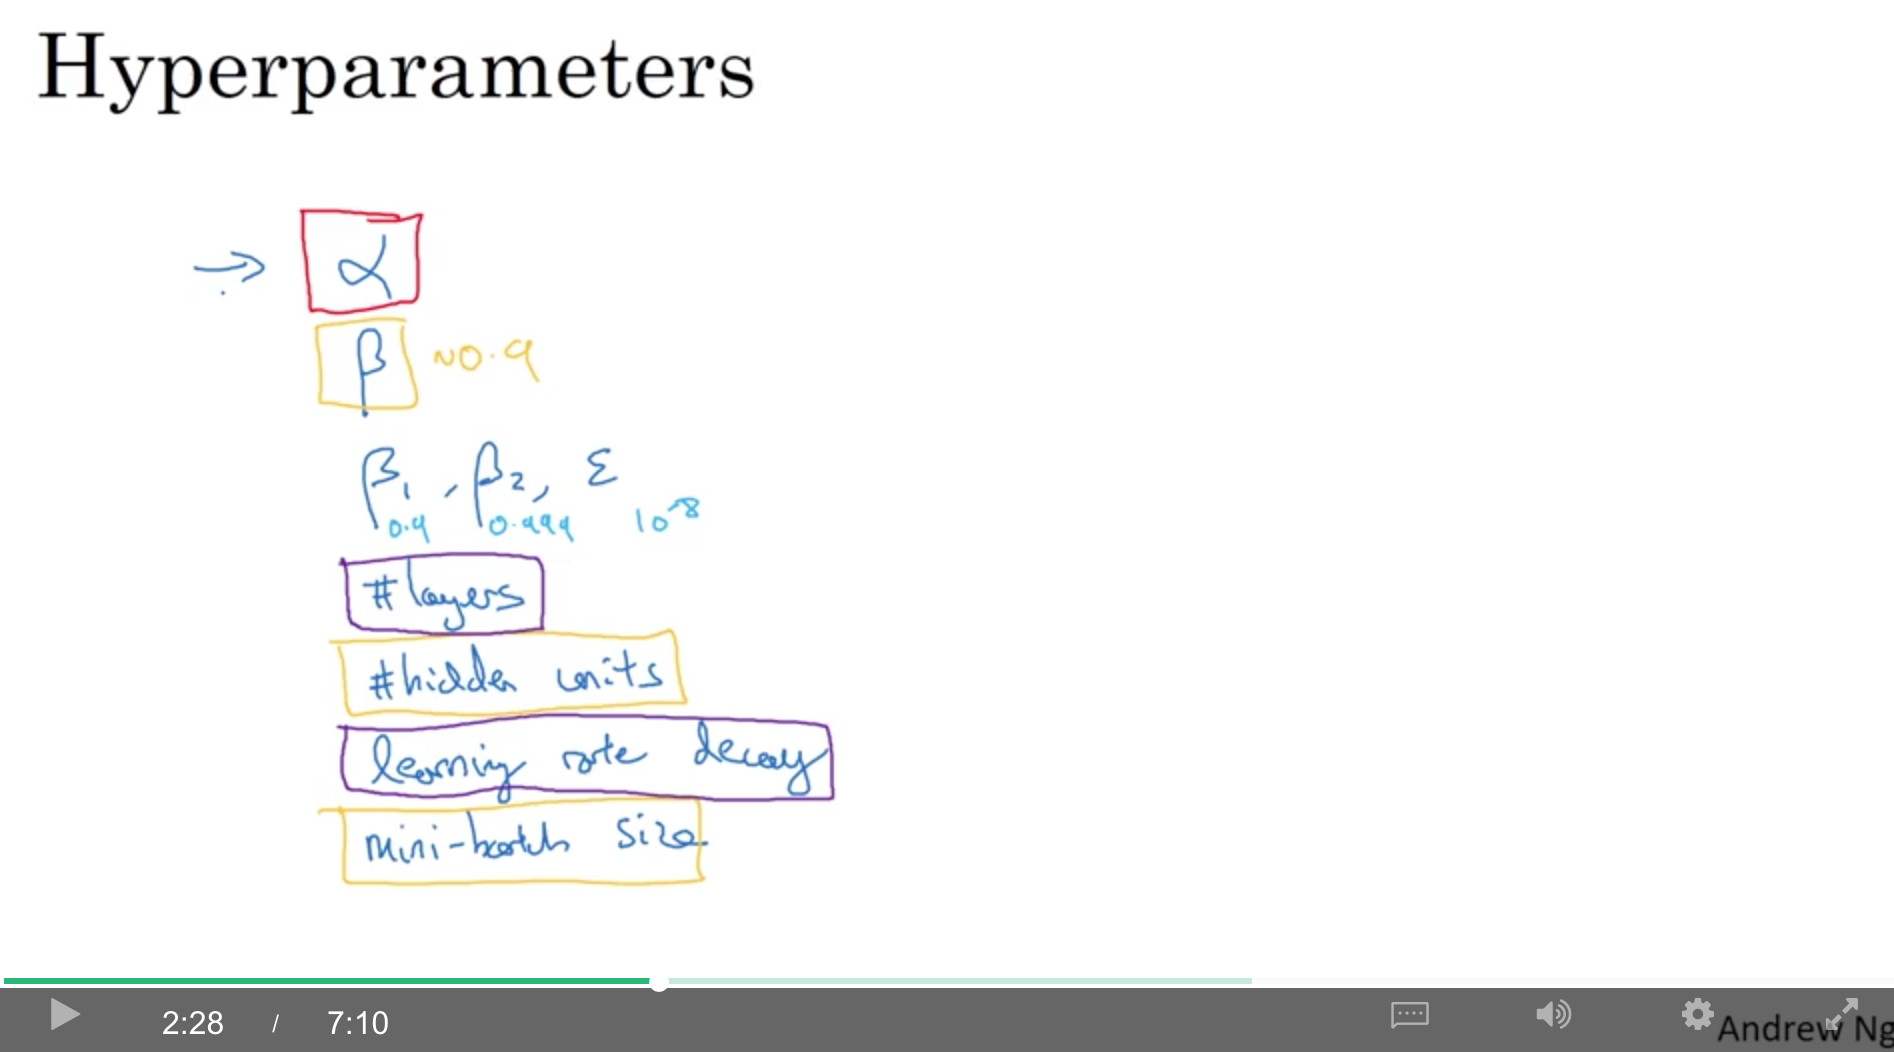 Hyperparameters
α
β ~0.9
β₁, β₂, ε
0.9 0.999 10⁻⁸
#layers
#hidden units
learning rate decay
mini-batch size
2:28 / 7:10
Andrew Ng